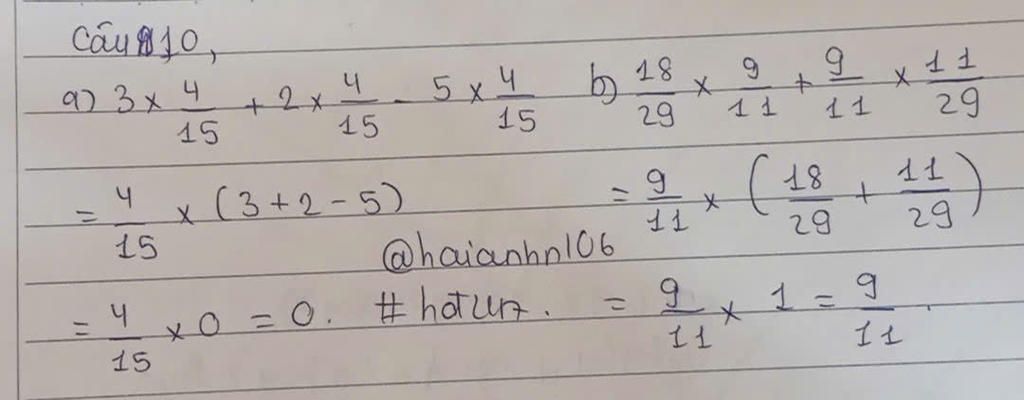 Câu 10,
a) 3 × 4/15 + 2 × 4/15 - 5 × 4/15
= 4/15 × (3 + 2 - 5)
= 4/15 × 0 = 0.
b) 18/29 × 9/11 + 9/11 × 11/29
= 9/11 × (18/29 + 11/29)
= 9/11 × 1 = 9/11.
@haianhn106